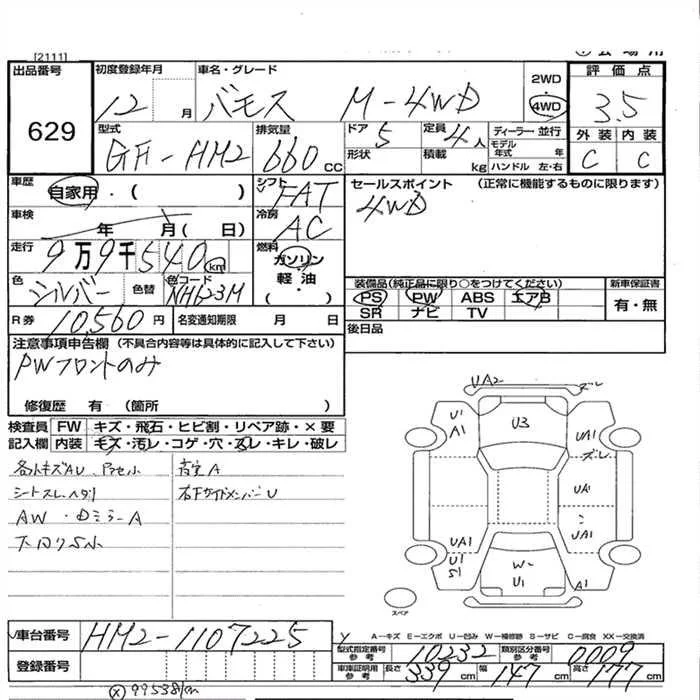 [2111]
出品番号 初度登録年月 車名・グレード 2WD 評価点
629 12 月 バモス M-4WD 4WD 3.5
型式 排気量 ドア 定員 ディーラー・並行 外装 内装
GF-HM2 660 cc 5 4人 モデル年式 年 C C
形状 積載 kg ハンドル 左・右
車歴 自家用・( ) シフト FAT セールスポイント (正常に機能するものに限ります)
車検 年 月( 日) 冷房 AC 4WD
走行 9万9千540km 燃料 ガソリン
軽油
( ・ )
色 シルバー 色替 色コード NH623M 装備品(純正品に限り○をつけてください) 新車保証書
PS PW ABS エアB 有・無
SR ナビ TV
R券 10,560円 名変通知期限 月 日 後日品
注意事項申告欄 (不具合内容等は具体的に記入して下さい)
PWフロントのみ
修復歴 有 (箇所 )
検査員 FW キズ・飛石・ヒビ割・リペア跡・×要
記入欄 内装 キズ・汚レ・コゲ・穴・スレ・キレ・破レ
各外キズAU
シートスレ、ヘタリ 右下サイドメンバーU
AW ・DミラーA
下回りS小
UA2 ズレ
U1 A1 U3 UA1
ズレ
UA1
UA1 UA1
U1 S1 W U1 A1
スペア
A-キズ E-エクボ U-凹み W-補修跡 S-サビ C-腐食 XX-交換済
車台番号 HM2-1107225
登録番号
型式指定番号 参考 10232 類別区分番号 参考 0009
車庫証明用 参考 長さ 339cm 幅 147cm 高さ 177cm
Ⓧ 99538km